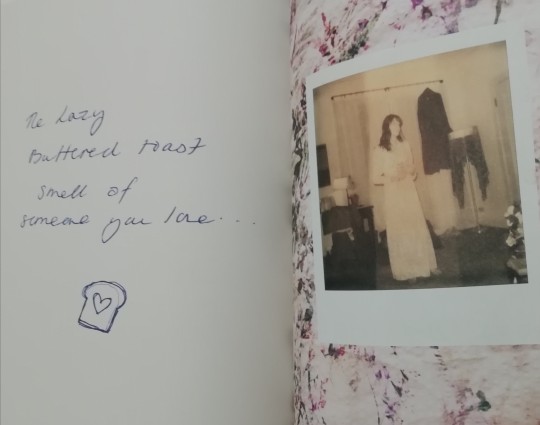 The Lazy
Buttered toast
smell of
someone you love...